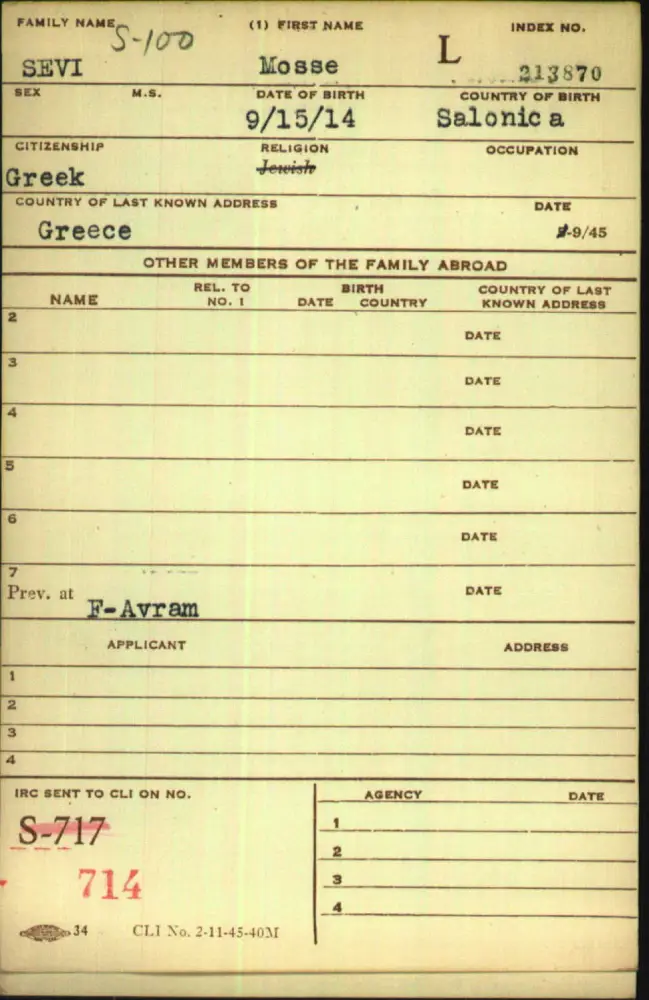 FAMILY NAME (1) FIRST NAME INDEX NO.
S-100 L
SEVI Mosse 213870
SEX M.S. DATE OF BIRTH COUNTRY OF BIRTH
9/15/14 Salonica
CITIZENSHIP RELIGION OCCUPATION
Greek Jewish
COUNTRY OF LAST KNOWN ADDRESS DATE
Greece -9/45
OTHER MEMBERS OF THE FAMILY ABROAD
NAME REL. TO NO. 1 BIRTH DATE COUNTRY COUNTRY OF LAST KNOWN ADDRESS
2 DATE
3 DATE
4 DATE
5 DATE
6 DATE
7 DATE
Prev. at F-Avram
APPLICANT ADDRESS
1
2
3
4
IRC SENT TO CLI ON NO. AGENCY DATE
S-717
714
1
2
3
4
34 CLI No. 2-11-45-40M